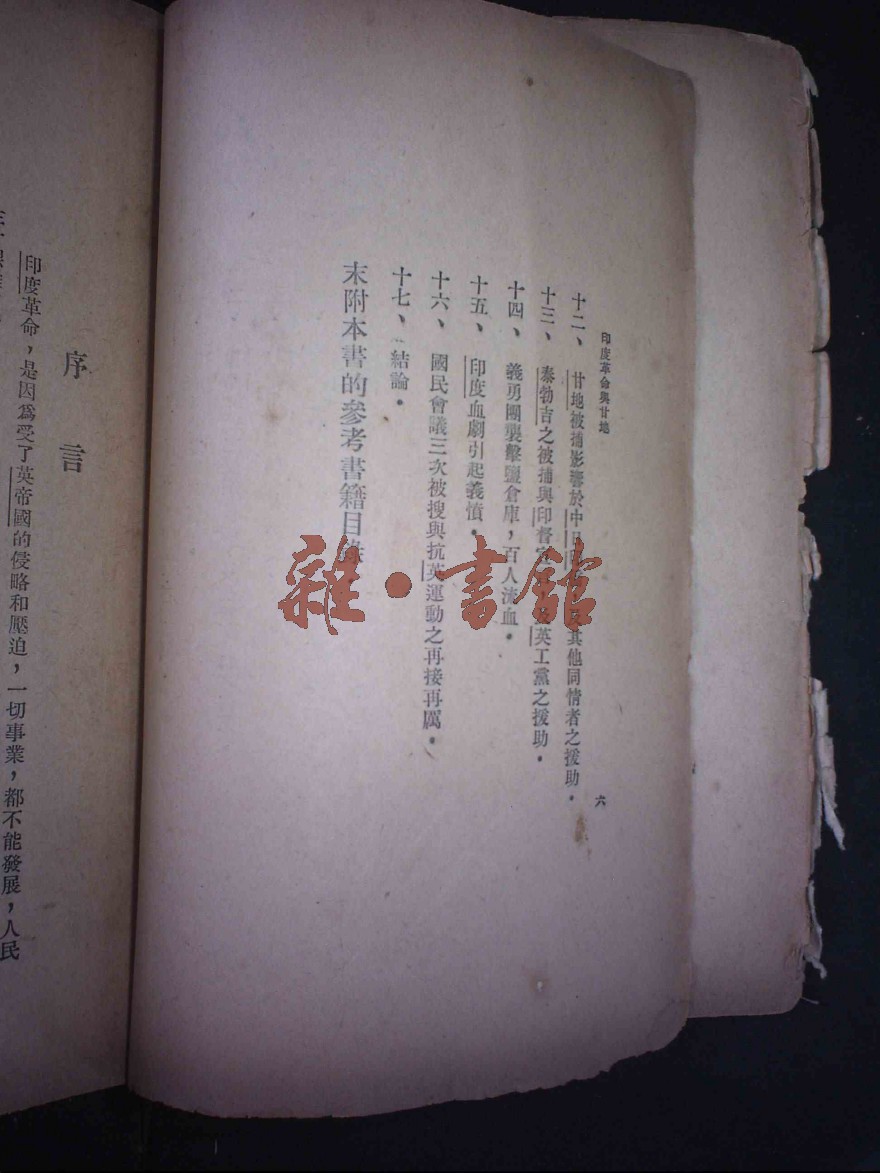 印度革命與甘地
六
十二、甘地被捕影響於中日 其他同情者之援助。
十三、泰勃吉之被捕與印督 英工黨之援助。
十四、義勇團襲擊鹽倉庫，百人流血。
十五、印度血劇引起義憤。
十六、國民會議三次被搜與抗英運動之再接再厲。
十七、結論。
末附本書的參考書籍目
雜·書館
序言
印度革命，是因爲受了英帝國的侵略和壓迫，一切事業，都不能發展，人民